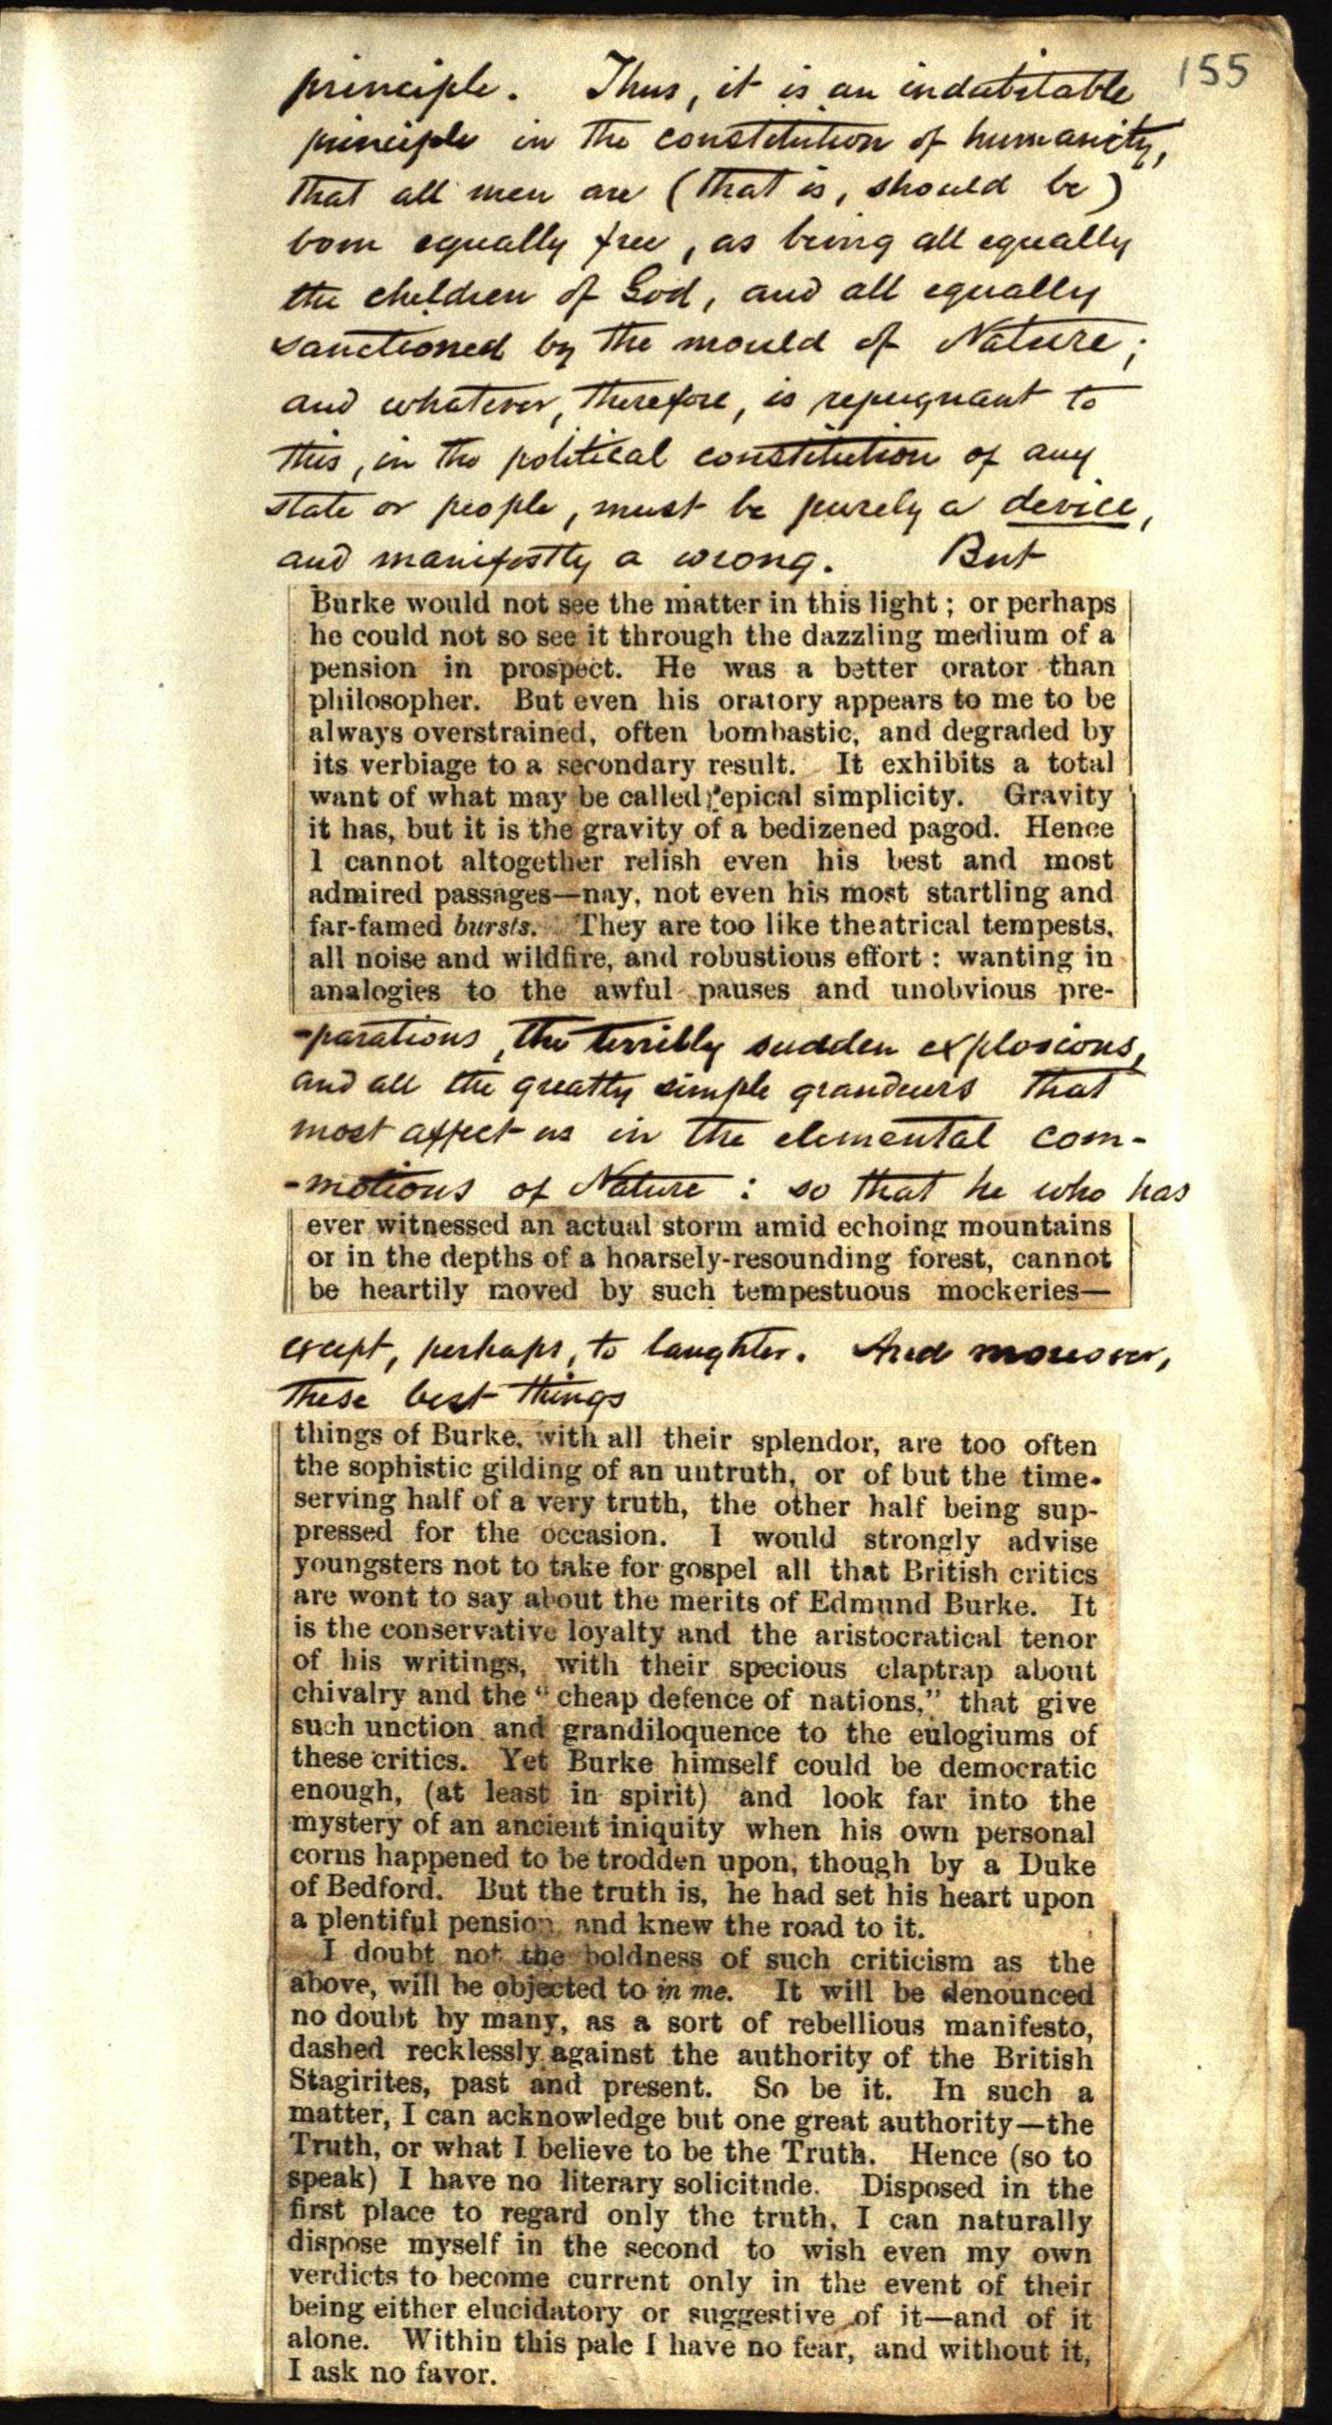 155
principle. Thus, it is an indubitable
principle in the constitution of humanity,
that all men are (that is, should be)
born equally free, as being all equally
the children of God, and all equally
sanctioned by the mould of Nature;
and whatever, therefore, is repugnant to
this, in the political constitution of any
state or people, must be purely a device,
and manifestly a wrong. But
Burke would not see the matter in this light; or perhaps
he could not so see it through the dazzling medium of a
pension in prospect. He was a better orator than
philosopher. But even his oratory appears to me to be
always overstrained, often bombastic, and degraded by
its verbiage to a secondary result. It exhibits a total
want of what may be called epical simplicity. Gravity
it has, but it is the gravity of a bedizened pagod. Hence
I cannot altogether relish even his best and most
admired passages—nay, not even his most startling and
far-famed bursts. They are too like theatrical tempests,
all noise and wildfire, and robustious effort: wanting in
analogies to the awful pauses and unobvious pre-
-parations, the terribly sudden explosions,
and all the greatly simple grandeurs that
most affect us in the elemental com-
-motions of Nature: so that he who has
ever witnessed an actual storm amid echoing mountains
or in the depths of a hoarsely-resounding forest, cannot
be heartily moved by such tempestuous mockeries—
except, perhaps, to laughter. And moreover,
these best things
things of Burke, with all their splendor, are too often
the sophistic gilding of an untruth, or of but the time-
serving half of a very truth, the other half being sup-
pressed for the occasion. I would strongly advise
youngsters not to take for gospel all that British critics
are wont to say about the merits of Edmund Burke. It
is the conservative loyalty and the aristocratical tenor
of his writings, with their specious claptrap about
chivalry and the "cheap defence of nations," that give
such unction and grandiloquence to the eulogiums of
these critics. Yet Burke himself could be democratic
enough, (at least in spirit) and look far into the
mystery of an ancient iniquity when his own personal
corns happened to be trodden upon, though by a Duke
of Bedford. But the truth is, he had set his heart upon
a plentiful pension, and knew the road to it.
I doubt not the boldness of such criticism as the
above, will be objected to in me. It will be denounced
no doubt by many, as a sort of rebellious manifesto,
dashed recklessly against the authority of the British
Stagirites, past and present. So be it. In such a
matter, I can acknowledge but one great authority—the
Truth, or what I believe to be the Truth. Hence (so to
speak) I have no literary solicitude. Disposed in the
first place to regard only the truth, I can naturally
dispose myself in the second to wish even my own
verdicts to become current only in the event of their
being either elucidatory or suggestive of it—and of it
alone. Within this pale I have no fear, and without it,
I ask no favor.